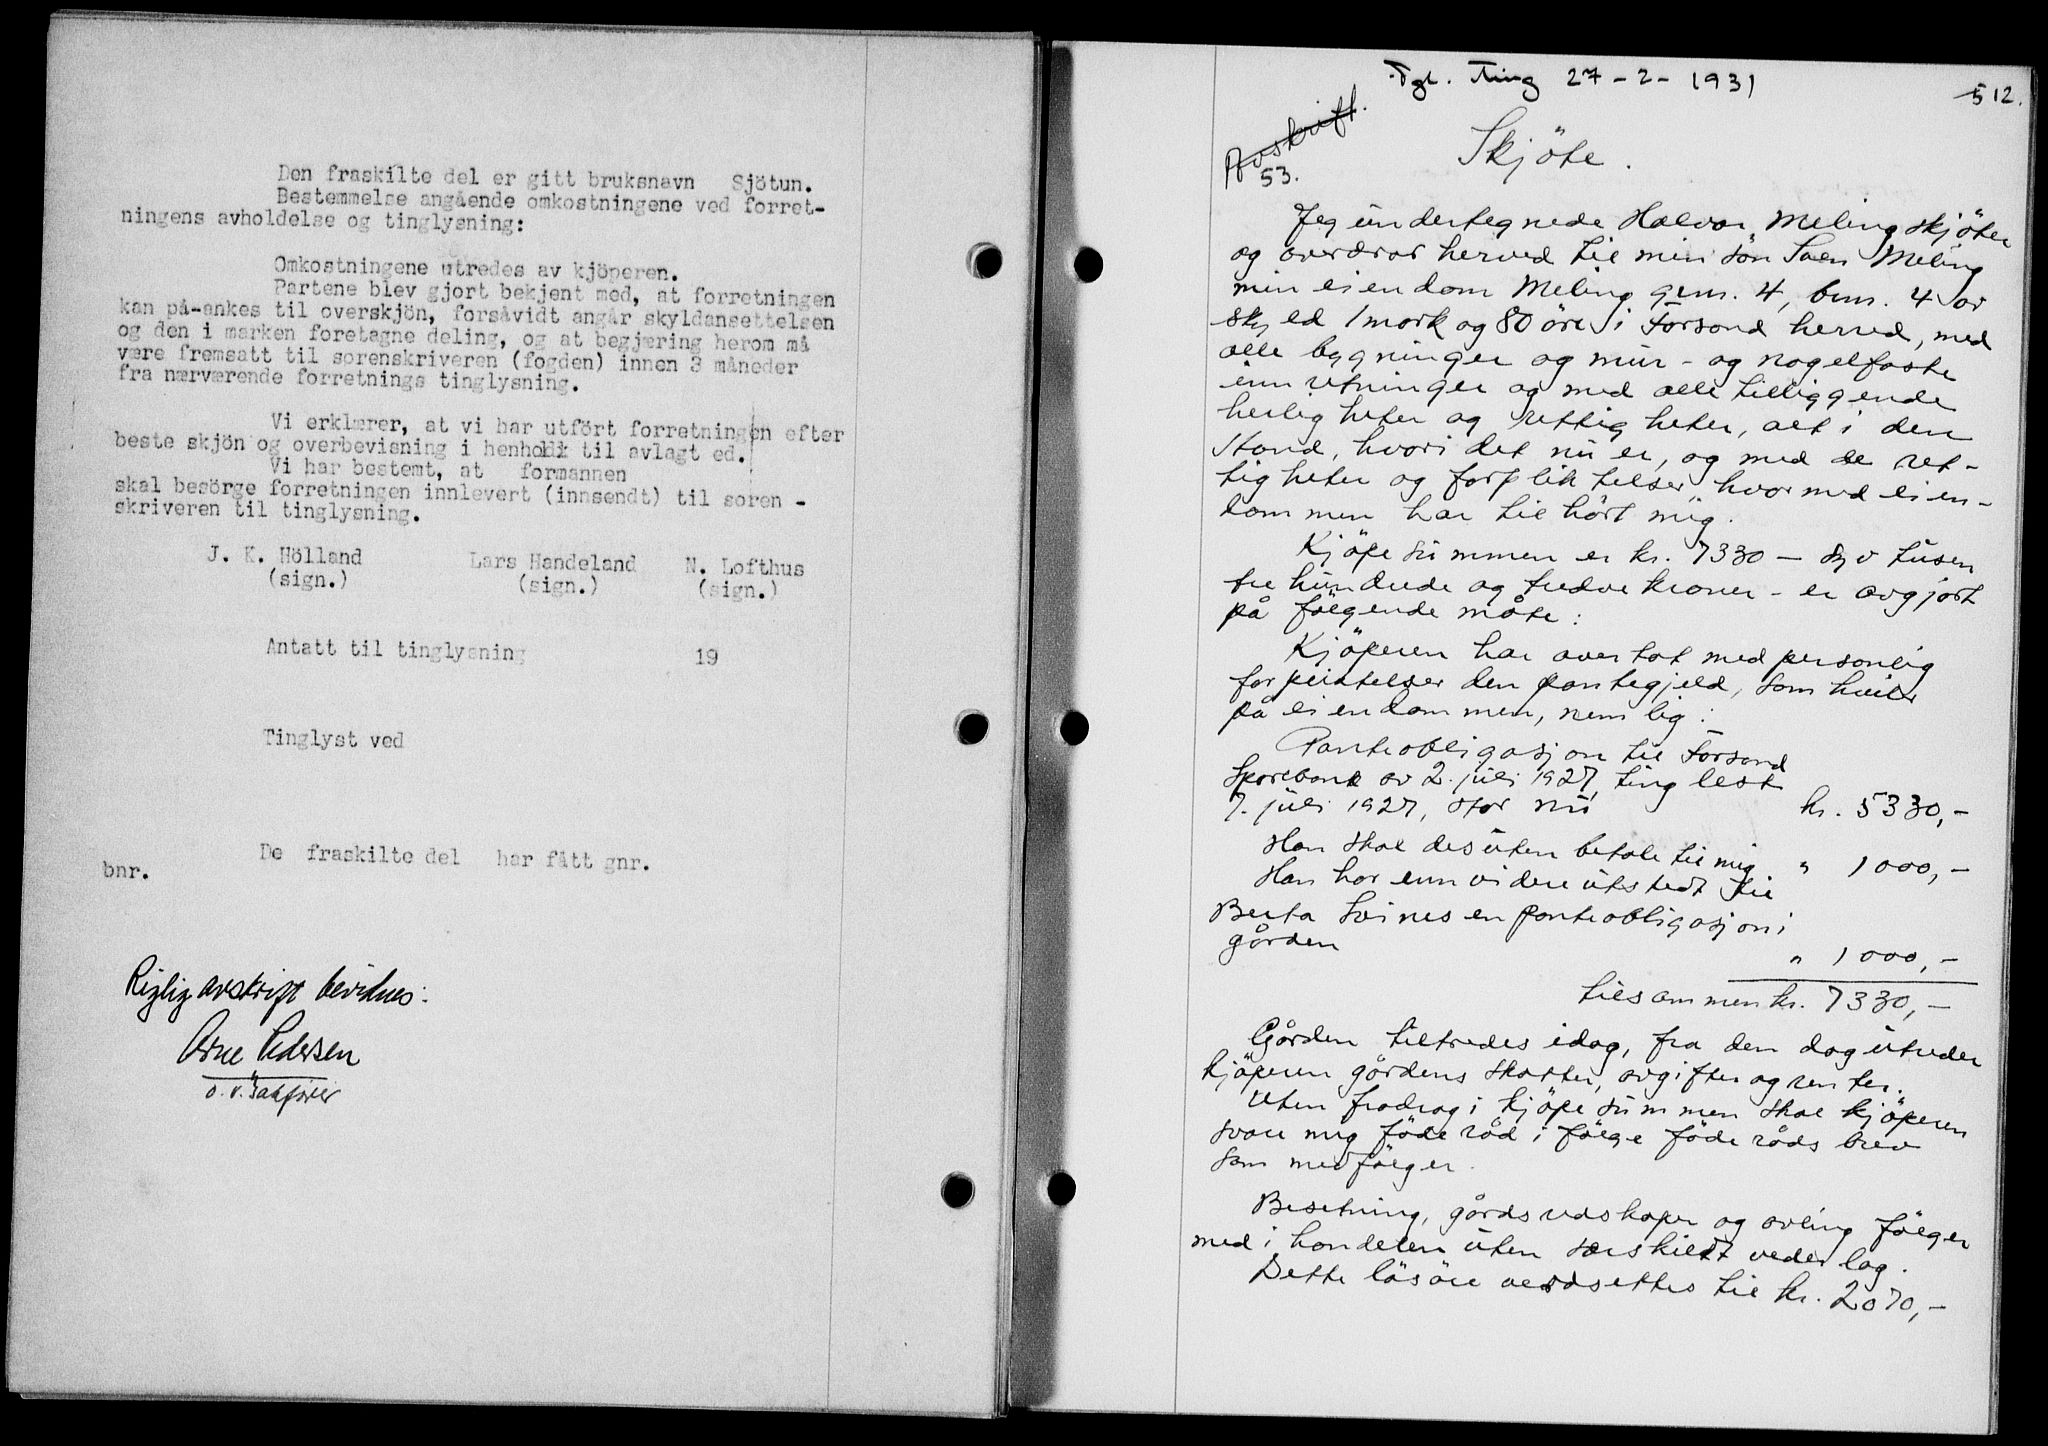 Den fraskilte del er gitt bruksnavn Sjötun.
Bestemmelse angående omkostningene ved forret-
ningens avholdelse og tinglysning:
Omkostningene utredes av kjöperen.
Partene blev gjort bekjent med, at forretningen
kan på-ankes til overskjön, forsåvidt angår skyldansettelsen
og den i marken foretagne deling, og at begjæring herom må
være fremsatt til sorenskriveren (fogden) innen 3 måneder
fra nærværende forretnings tinglysning.
Vi erklærer, at vi har utfört forretningen efter
beste skjön og overbevisning i henhold til avlagt ed.
Vi har bestemt, at formannen
skal besörge forretningen innlevert (innsendt) til soren -
skriveren til tinglysning.
J. K. Hölland Lars Handeland N. Lofthus
(sign.) (sign.) (sign.)
Antatt til tinglysning 19
Tinglyst ved
De fraskilte del har fått gnr.
bnr.
Riglig avskrift bevidnes:
Arne Pedersen
o.r.sakförer
Tgl. Ting 27-2-1931
512.
Avskrift.
53.
Skjöte.
Jeg undertegnede Halvor Meling skjöter
og overdrar herved til min sön Sven Meling
min eiendom Meling gnr. 4, bnr. 4 av
skyld 1 mark og 80 öre i Forsand herred, med
alle bygninger og mur- og nagelfaste
innretninger og med alle tilliggende
herligheter og rettigheter, alt i den
stand, hvori det nu er, og med de ret-
tigheter og forpliktelser hvormed eien-
dommen har tilhört mig.
Kjöpesummen er kr. 7330 — syv tusen
tre hundrede og tredve kroner - er avgjort
på fölgende måte:
Kjöperen har overtat med personlig
forpliktelser den pantegjeld, som hviler
på eiendommen, nemlig:
Panteobligasjon til Forsand
Sparebank av 2. juli 1927, tinglest
7. juli 1927, stor nu kr. 5330,-
Han skal desuten betale til mig " 1000,-
Han har ennvidere utstedt til
Berta Svines en panteobligasjon i
gården " 1000,-
tilsammen kr. 7330,-
Gården tiltredes idag, fra den dag utreder
kjöperen gårdens skatter, avgifter og renter.
Uten fradrag i kjöpesummen skal kjöperen
svare mig föderåd i fölge föderådsbrev
som medfölger.
Besetning, gårdsredskaper og avling fölger
med i handelen uten særskildt vederlag.
Dette lösöre verdsettes til kr. 2070,-